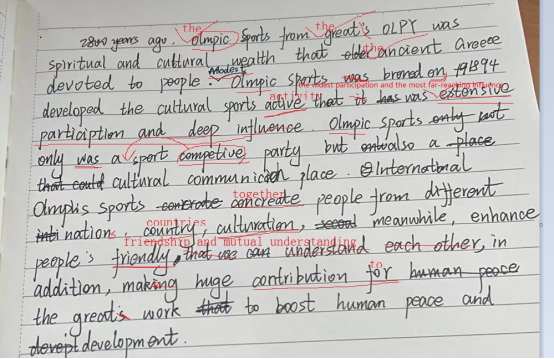 the the
2800 years ago. Olmpic Sports from great's OLPY was
spiritual and cultural wealth that older the ancient Greece
devoted to people. Modest Olmpic sports was broned on, 191894
the widest participation and the most far-reaching influence
activity
developed the cultural sports active that it has was extensive
particiption and deep influence. Olmpic sports only not
only was a sport competive party but onto also a place
that could cultural communicion place. International
together
Olmpis sports concrate concreate people from different
countries
inti nations, country, culturation, secoal meanwhile, enhance
friendship and mutual understanding
people's friendly, that we can understand each other, in
addition, making huge contribution for to human peace
the great's work that to boost human peace and
devept development.